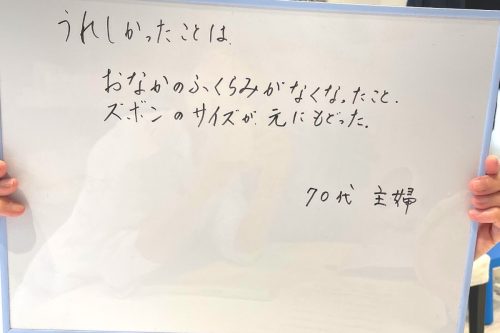 うれしかったことは
おなかのふくらみがなくなったこと.
ズボンのサイズが元にもどった.
70代 主婦